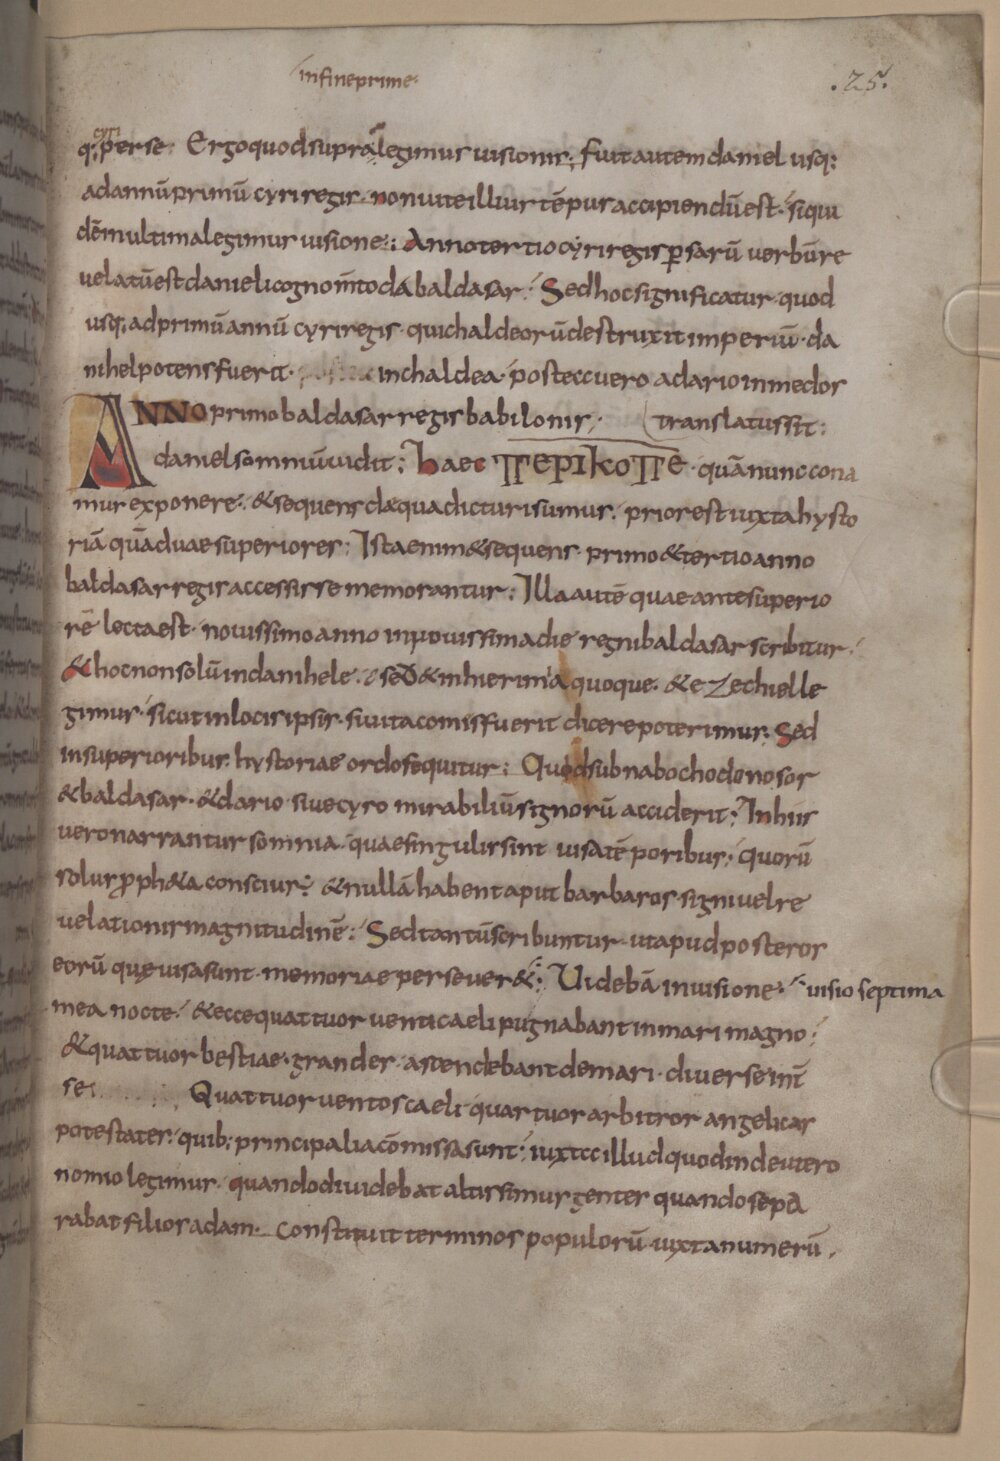 infineprime·
.25.
cyri
q; perse· Ergo quod supra legimus visionis; fuit autem daniel usq:
ad annū primū cyri regis· non vite illius tēpus accipiendū est· siqui
dē in ultima legimus visione:; Anno tertio cyri regis psarū verbū re
velatū est danieli cognom̄to da baldasar; Sed hoc significatur· quod
usq; ad primū annū cyri regis· qui chaldeorū destruxit imperiū· da
nihel potens fuerit· in chaldea· postea vero a dario in medos
translatus sit:
ANNO primo baldasar regis babilonis;
daniel somniū vidit; haec πepikoπē· quā nunc cona
mur exponere· & sequens de qua dicturi sumus; prior est iuxta hysto
riā quā duae superiores; Ista enim & sequens· primo & tertio anno
baldasar regis accessisse memorantur; Illa autē quae ante superio
rē lecta est· novissimo anno in novissima die regni baldasar scribitur·
& hoc non solū in danihele· sed & in hierimia quoque· & ezechiel le
gimus· sicut in locis ipsis· si vita comis fuerit dicere poterimus; Sed
in superioribus; hystoriae ordo sequitur; Quod sub nabochodonosor
& baldasar· & dario sive cyro mirabiliū signorū acciderit; In his
vero narrantur somnia· quae singulis sint visa tēporibus; quorū
solus pph&a conscius; & nullā habent aput barbaros signi vel re
velationis magnitudinē; Sed tantū scribuntur· ut apud posteros
eorū quę visa sunt· memoriae persever&; Videbā in visione·
visio septima
mea nocte· & ecce quattuor venti caeli pugnabant in mari magno;
& quattuor bestiae· grandes· ascendebant de mari· diverse int̄
se· Quattuor ventos caeli· quattuor arbitror angelicas
potestates; quib; principalia cōmissa sunt; iuxta illud quod in deutero
nomio legimus· quando dividebat altissimus gentes quando sepa
rabat filios adam· constituit terminos populorū· iuxta numerū·